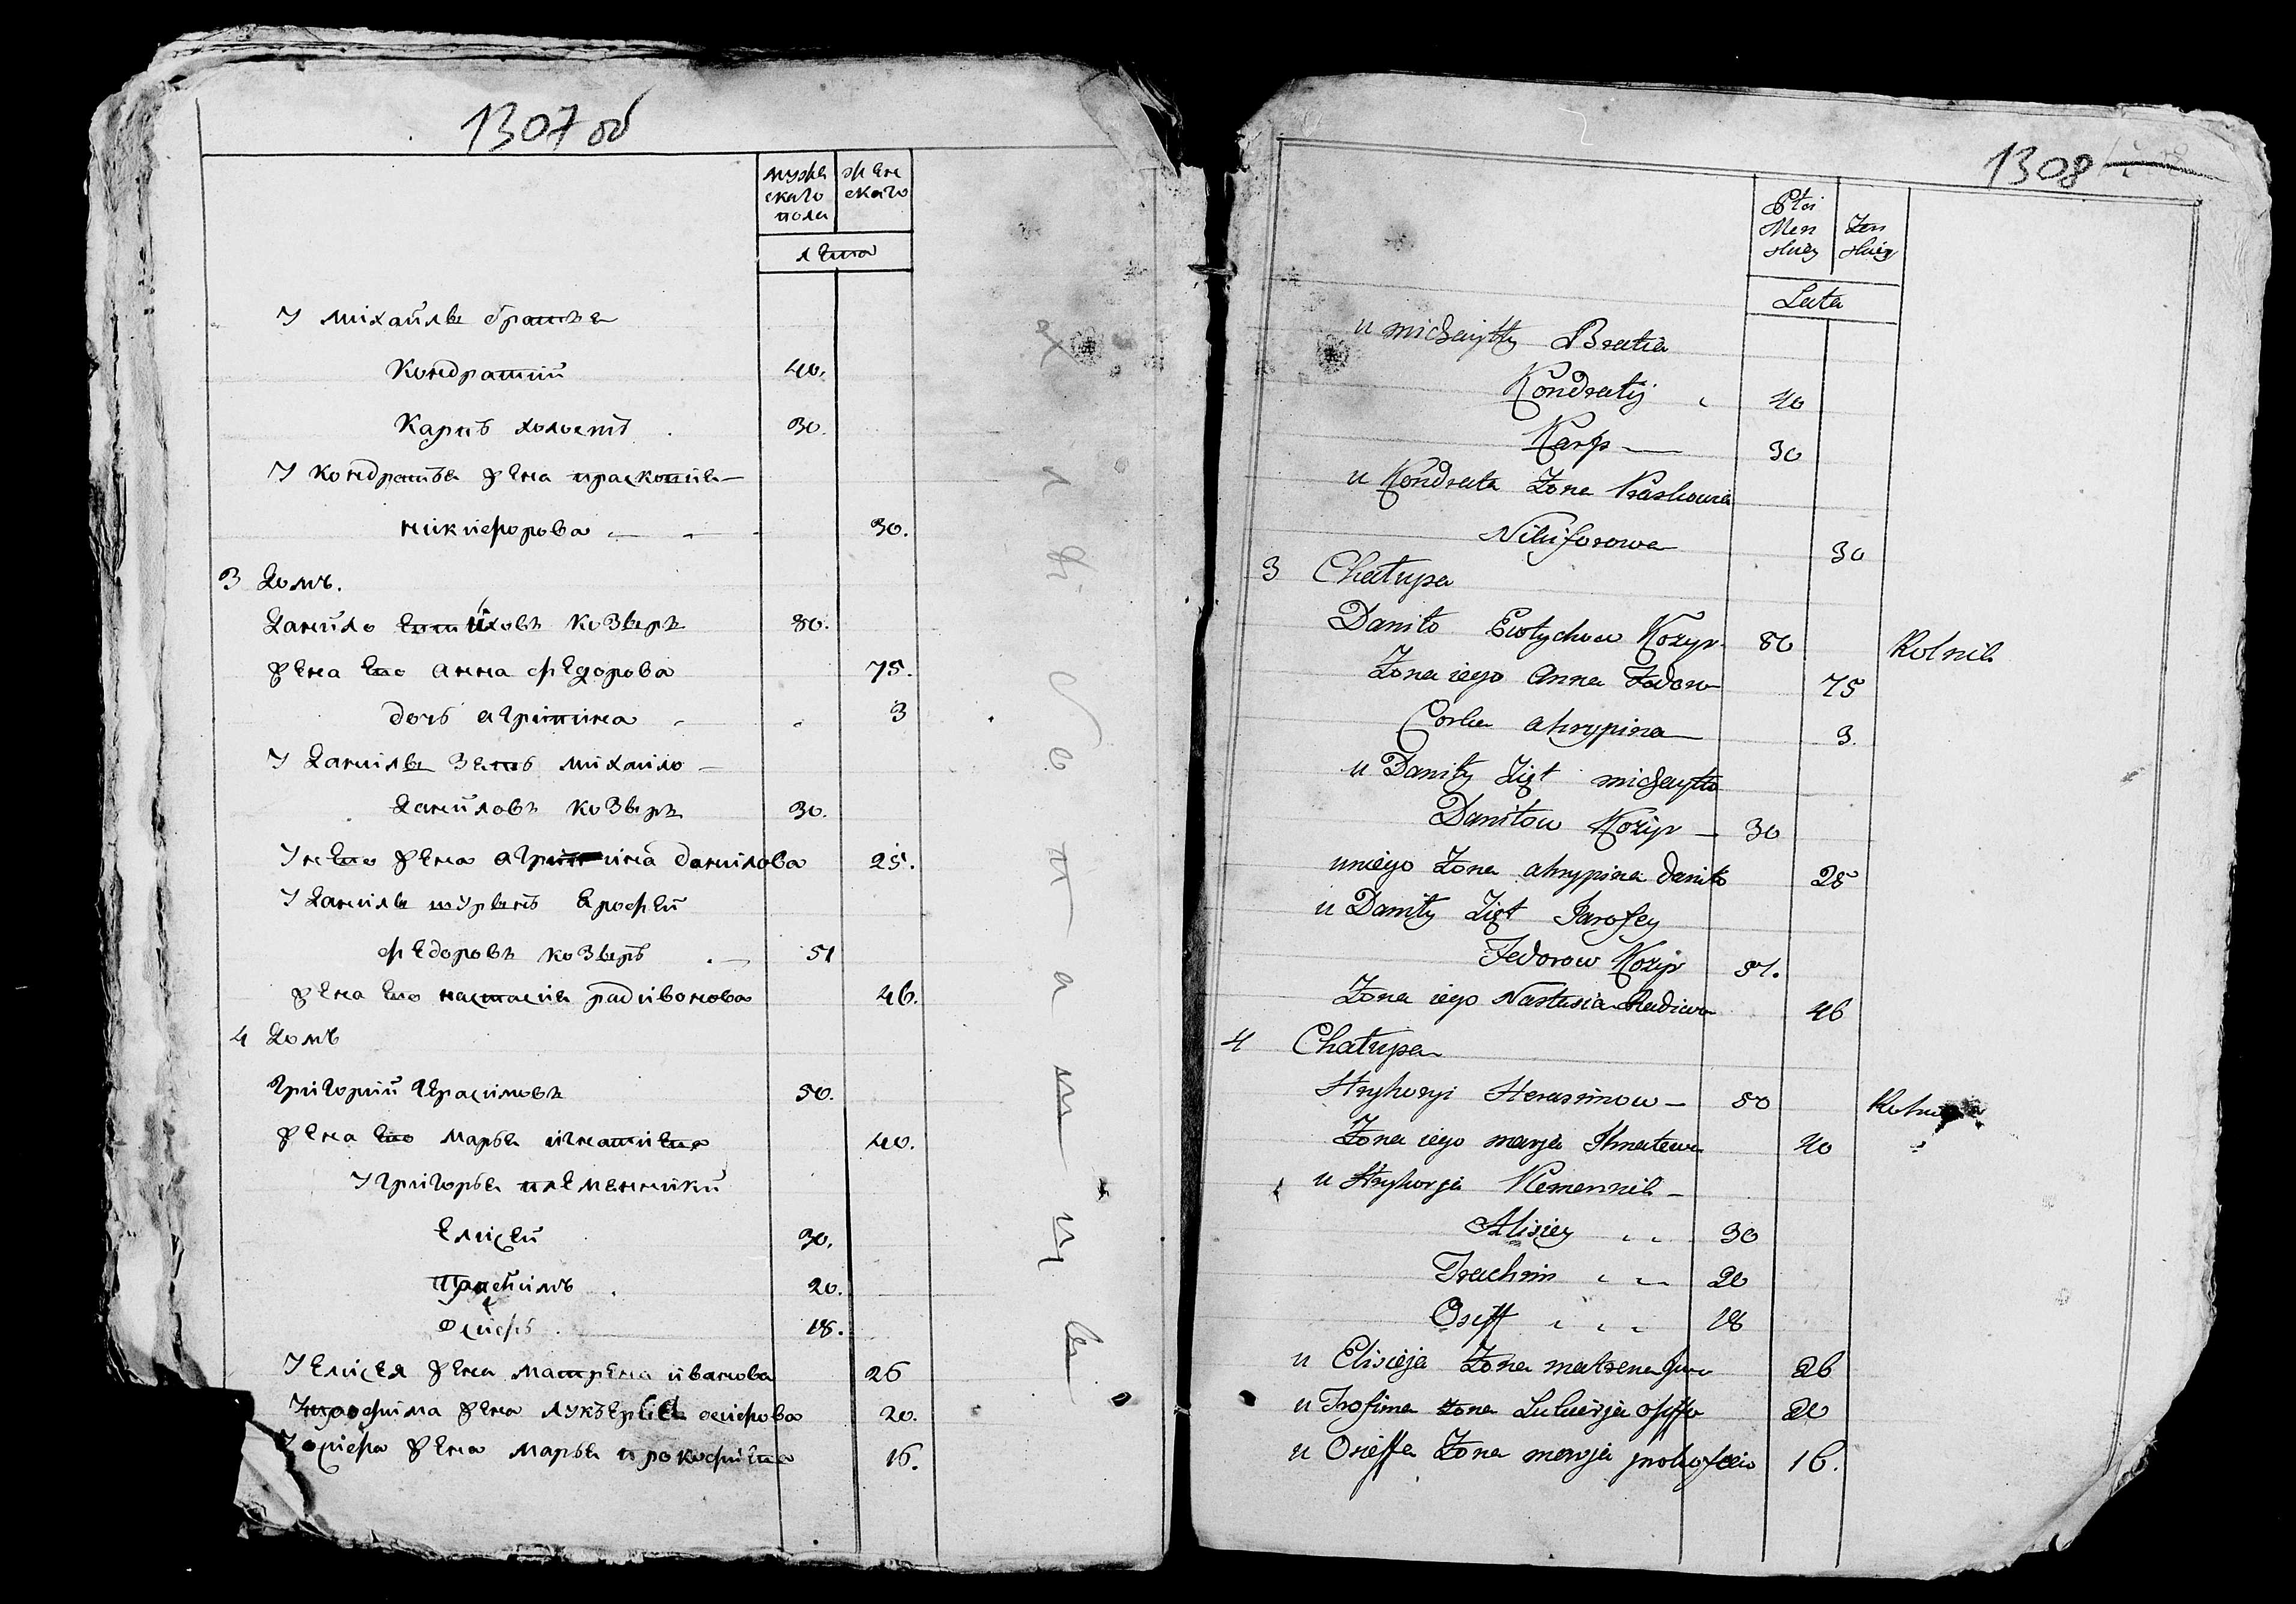 1307 об
мужескаго пола
женскаго
лета
У михайлы братья
Кондратий 40.
Карпъ холостъ 30.
У кондратья жена прасковия
никифорова 30.
3 Домъ.
Данило Козыръ 80.
жена его анна федорова 75.
дочь агрипина 3
У Данилы зять михайло
Даниловъ козыръ 30.
У него жена агрипина данилова 25.
У Данилы ерофей
федоровъ козыръ 51
жена его настасия радивонова 46.
4 Домъ
Григорий Герасимовъ 50.
жена его марья игнатиева 40.
У григорья племенники
Елисей 30.
20.
Осифъ 18.
У Елисея жена матрена иванова 26
У трофима жена лукерья осифова 20.
У осифа жена марья прокофиева 16.
1308
Płci Męskiey
Żenskiey
Lata
u michayłły Bratia
Kondratij 40
Karp 30
u Kondrata Żona Praskowia
Nikiforowa 30
3 Chałupa
Daniło Ewtychow Kozyr 80 Rolnik
Żona iego Anna Fedorow 75
Corka ahrypina 3.
u Daniły Zięt michayłło
Daniłow Kozyr 30
u niego Żona ahrypina daniło 25
u Daniły Zięt Jarofey
Fedorow Kozyr 51.
Żona iego Nastasia Radiwo 46
4 Chałupa
Hryhoryi Herasimow 50 Rolnik
Żona iego marja Ihnatewa 40
u Hryhorja Plemennik
Alisiey 30
Trachim 20
Osiff 18
u Elisieja Żona matrena 26
u Trofima żona Lukierja osiffo 20
u Osieffa Żona marja prokofeiw 16.